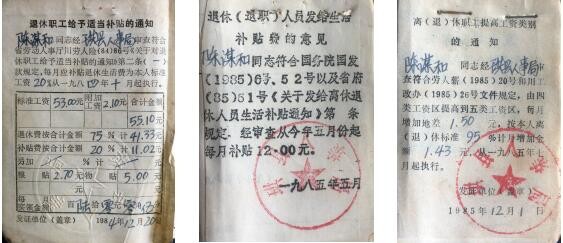 退休职工给予适当补贴的通知
陈谋和同志经珙县人事局审查符合
省劳动人事厅川劳人险(84)86号《关于对退
休职工给予适当补贴的通知》第二条(一)
款规定,每月应补贴退休生活费为本人标准
工资20%从一九八四年十月起执行。
标准工资 53.00元 附加工资 2.10元 合计金额
55.10
退休费按合计金额 75%计 41.33元
补贴费按合计金额 20%计 11.02元
另加 %计 元
粮贴 2.70元 物贴 5.00元
每月实领金额 百陆拾零元零5分
发证单位(盖章) 1984年12月20日
退休(退职)人员发给生活
补贴费的意见
陈谋和同志符合国务院国发
(1985)6号、52号以及省府
(85)51号《关于发给离休退
休人员生活补贴通知》第 条
规定,经审查从今年五月份起
每月补贴12.00元。
一九八五年五月
离(退)休职工提高工资类别
的通知
陈谋和同志经珙县人事局
审查符合劳人薪(1985)20号和川工
改办(1985)26号文件规定,由四
类工资区提高到五类工资区,每月
增加地差1.50元,按本人离
(退)休标准95%计月增加金
额1.43元,从一九八五年七
月起执行。
发证单位(盖章)
1985年12月1日